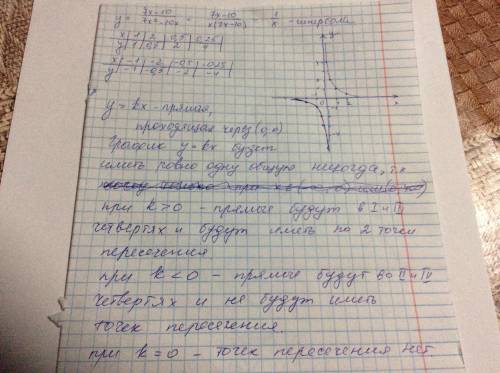 y = 7x-10 / 7x²-10x = 7x-10 / x(7x-10) = 1/x - гипербола
x | 1 | 2 | 0,5 | 0,25
y | 1 | 0,5 | 2 | 4
x | -1 | -2 | -0,5 | -0,25
y | -1 | -0,5 | -2 | -4
y = kx - прямая,
проходящая через (0;0)
График y = kx будет
иметь ровно одну общую никогда, т.к
при k > 0 - прямые будут в I и III
четвертях и будут иметь по 2 точки
пересечения
при k < 0 - прямые будут во II и IV
четвертях и не будут иметь
точек пересечения.
при k = 0 - точек пересечения нет